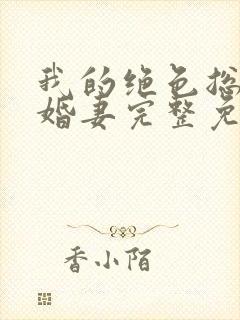 我的绝色总
婚妻完整免
香小陌